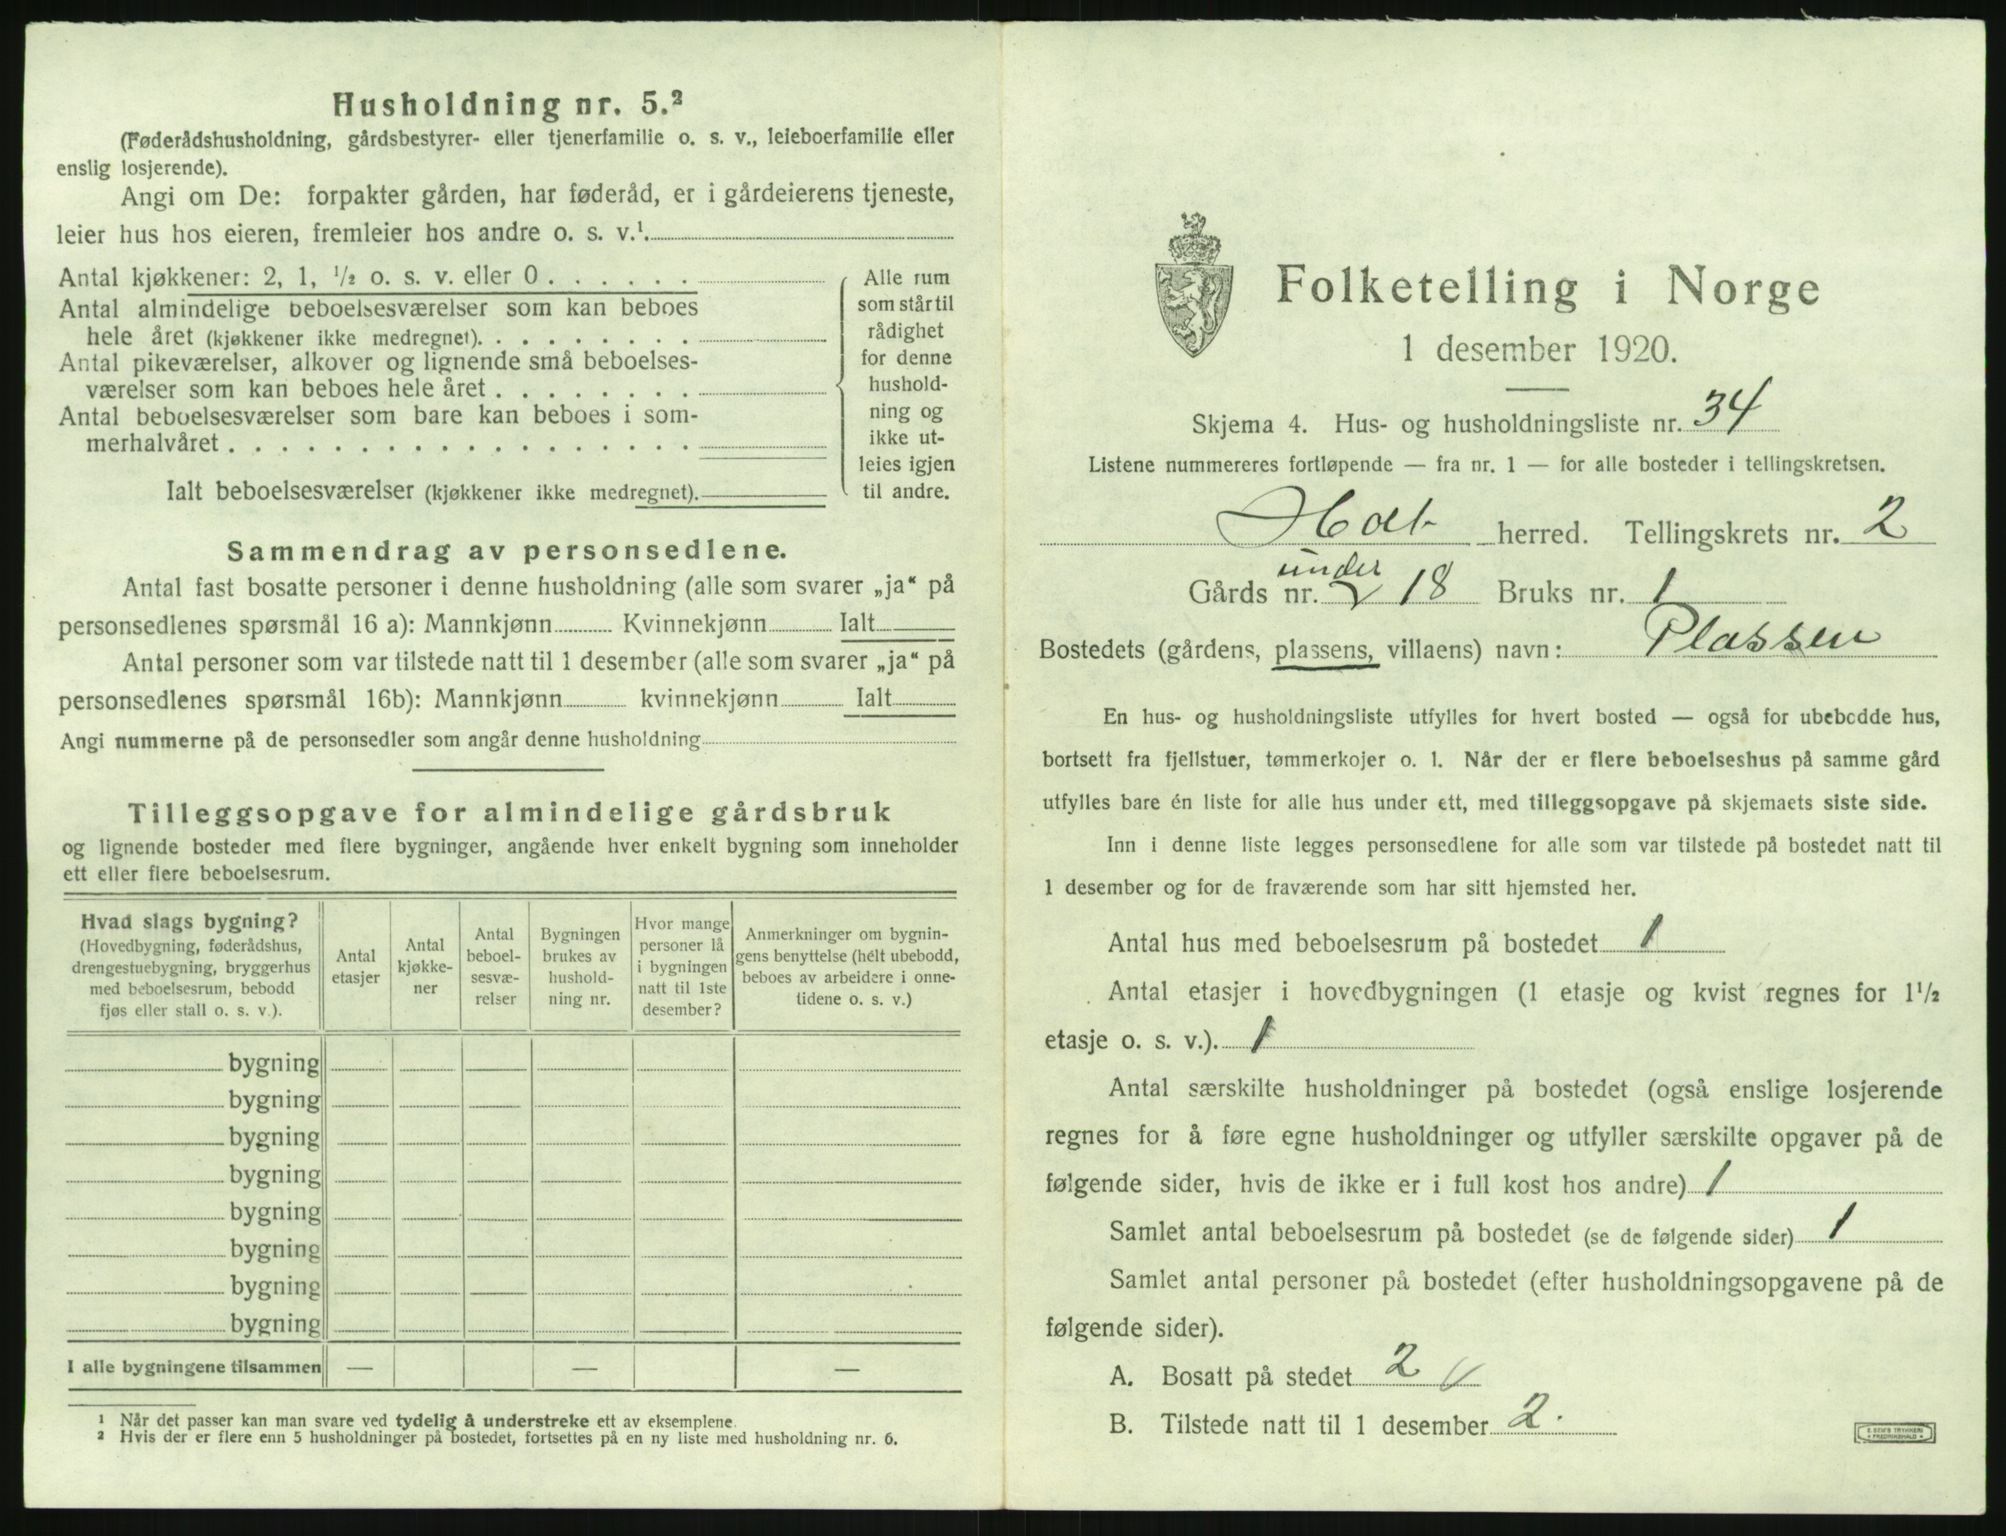 Husholdning nr. 5.²
(Føderådshusholdning, gårdsbestyrer- eller tjenerfamilie o. s. v., leieboerfamilie eller
enslig losjerende).
Angi om De: forpakter gården, har føderåd, er i gårdeierens tjeneste,
leier hus hos eieren, fremleier hos andre o. s. v.¹.
Antal kjøkkener: 2, 1, ½ o. s. v. eller 0 . . . . . .
Antal almindelige beboelsesværelser som kan beboes
hele året (kjøkkener ikke medregnet). . . . . . . . .
Antal pikeværelser, alkover og lignende små beboelses-
værelser som kan beboes hele året . . . . . . . .
Antal beboelsesværelser som bare kan beboes i som-
merhalvåret . . . . . . . . . . . . . . . . . .
Ialt beboelsesværelser (kjøkkener ikke medregnet).
Alle rum
som står til
rådighet
for denne
hushold-
ning og
ikke ut-
leies igjen
til andre.
Sammendrag av personsedlene.
Antal fast bosatte personer i denne husholdning (alle som svarer „ja“ på
personsedlenes spørsmål 16 a): Mannkjønn Kvinnekjønn Ialt
Antal personer som var tilstede natt til 1 desember (alle som svarer „ja“ på
personsedlenes spørsmål 16b): Mannkjønn kvinnekjønn Ialt
Angi nummerne på de personsedler som angår denne husholdning
Tilleggsopgave for almindelige gårdsbruk
og lignende bosteder med flere bygninger, angående hver enkelt bygning som inneholder
ett eller flere beboelsesrum.
Hvad slags bygning?
(Hovedbygning, føderådshus,
drengestuebygning, bryggerhus
med beboelsesrum, bebodd
fjøs eller stall o. s. v.).
Antal
etasjer
Antal
kjøkke-
ner
Antal
beboel-
sesvæ-
relser
Bygningen
brukes av
hushold-
ning nr.
Hvor mange
personer lå
i bygningen
natt til 1ste
desember?
Anmerkninger om bygnin-
gens benyttelse (helt ubebodd,
beboes av arbeidere i onne-
tidene o. s. v.)
bygning
bygning
bygning
bygning
bygning
bygning
bygning
bygning
I alle bygningene tilsammen — — —
¹ Når det passer kan man svare ved tydelig å understreke ett av eksemplene.
² Hvis der er flere enn 5 husholdninger på bostedet, fortsettes på en ny liste med husholdning nr. 6.
Folketelling i Norge
1 desember 1920.
Skjema 4. Hus- og husholdningsliste nr. 34
Listene nummereres fortløpende — fra nr. 1 — for alle bosteder i tellingskretsen.
Holt herred. Tellingskrets nr. 2
under
Gårds nr. 18 Bruks nr. 1
Bostedets (gårdens, plassens, villaens) navn: Plassen
En hus- og husholdningsliste utfylles for hvert bosted — også for ubebodde hus,
bortsett fra fjellstuer, tømmerkojer o. l. Når der er flere beboelseshus på samme gård
utfylles bare én liste for alle hus under ett, med tilleggsopgave på skjemaets siste side.
Inn i denne liste legges personsedlene for alle som var tilstede på bostedet natt til
1 desember og for de fraværende som har sitt hjemsted her.
Antal hus med beboelsesrum på bostedet 1
Antal etasjer i hovedbygningen (1 etasje og kvist regnes for 1½
etasje o. s. v.). 1
Antal særskilte husholdninger på bostedet (også enslige losjerende
regnes for å føre egne husholdninger og utfyller særskilte opgaver på de
følgende sider, hvis de ikke er i full kost hos andre) 1
Samlet antal beboelsesrum på bostedet (se de følgende sider) 1
Samlet antal personer på bostedet (efter husholdningsopgavene på de
følgende sider).
A. Bosatt på stedet 2
B. Tilstede natt til 1 desember 2.